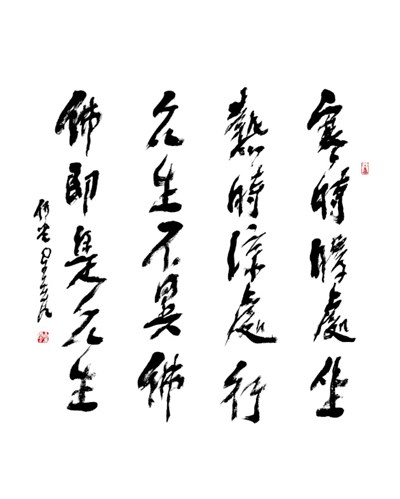 寒時暖處坐
熱時涼處行
众生不異佛
佛即是众生